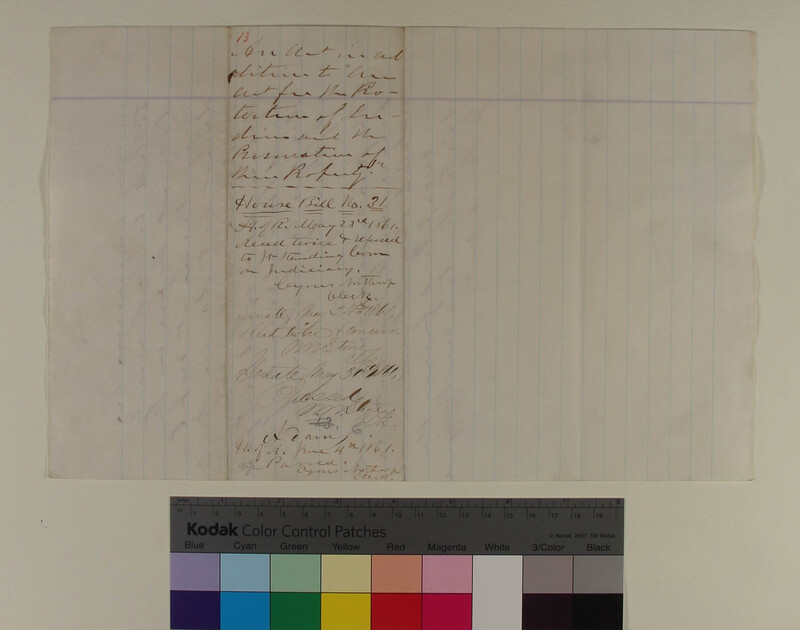 13
An Act in ad
dition to "An
Act for the Pro-
tection of In-
dians and the
Preservation of
their Property."
House Bill No. 31
H. of R. May 23rd 1861.
Read twice & referred
to Jt Standing Com
on Judiciary.
Cyrus Northrop
Clerk.
Senate, May 1861,
Read twice & concur.
Senate, May 31st 1861,
13
H. of R. June 4th 1861.
Passed.
Cyrus Northrop
Clerk.
Kodak Color Control Patches
© Kodak, 2007 TM: Kodak
Blue Cyan Green Yellow Red Magenta White 3/Color Black